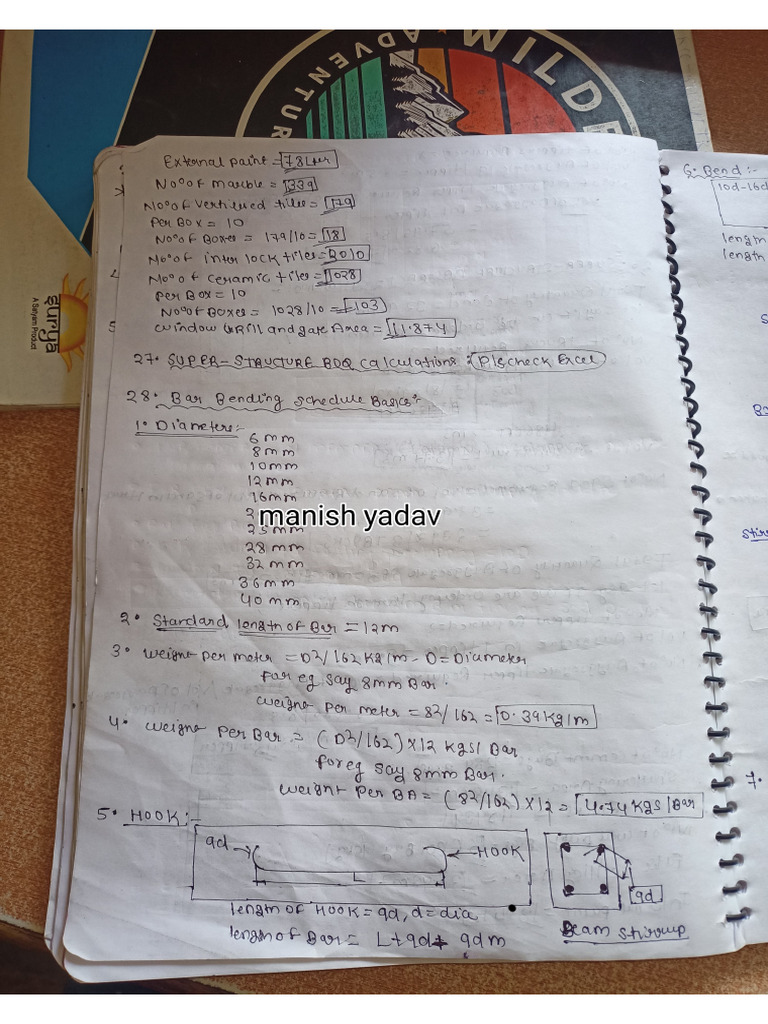 WILDE
ADVENTUR
सूर्या
A Satyam Product
External paint = 78 Liter
No° of marble = 339
No° of vertified tiles = 179
Per Box = 10
No° of Boxes = 179/10 = 18
No° of inter lock tiles = 2010
No° of ceramic tiles = 1028
Per Box = 10
No° of Boxes = 1028/10 = 103
5
window Grill and gate Area = 11.874
27. SUPER-STRUCTURE BOQ calculations : Pls check Excel
28. Bar Bending schedule Basics:-
1. Diameters:-
6 mm
8 mm
10 mm
12 mm
16 mm
2
manish yadav
25 mm
28 mm
32 mm
36 mm
40 mm
2. Standard length of Bar = 12m
3. weight per meter = D²/162 kg/m - D = Diameter
for eg say 8mm Bar.
weight per meter = 8²/162 = 0.39 kg/m
4. weight Per Bar = (D²/162) x 12 kgs/Bar
for eg say 8mm Bar.
weight Per BA = (8²/162) x 12 = 4.74 kgs/Bar
5. HOOK:-
9d
HOOK
L
9d
length of HOOK = 9d, d = dia
length of Bar = L+9d+ 9d m
Beam stirrup
6. Bend :-
10d-16d
length
length
Stirr
7.